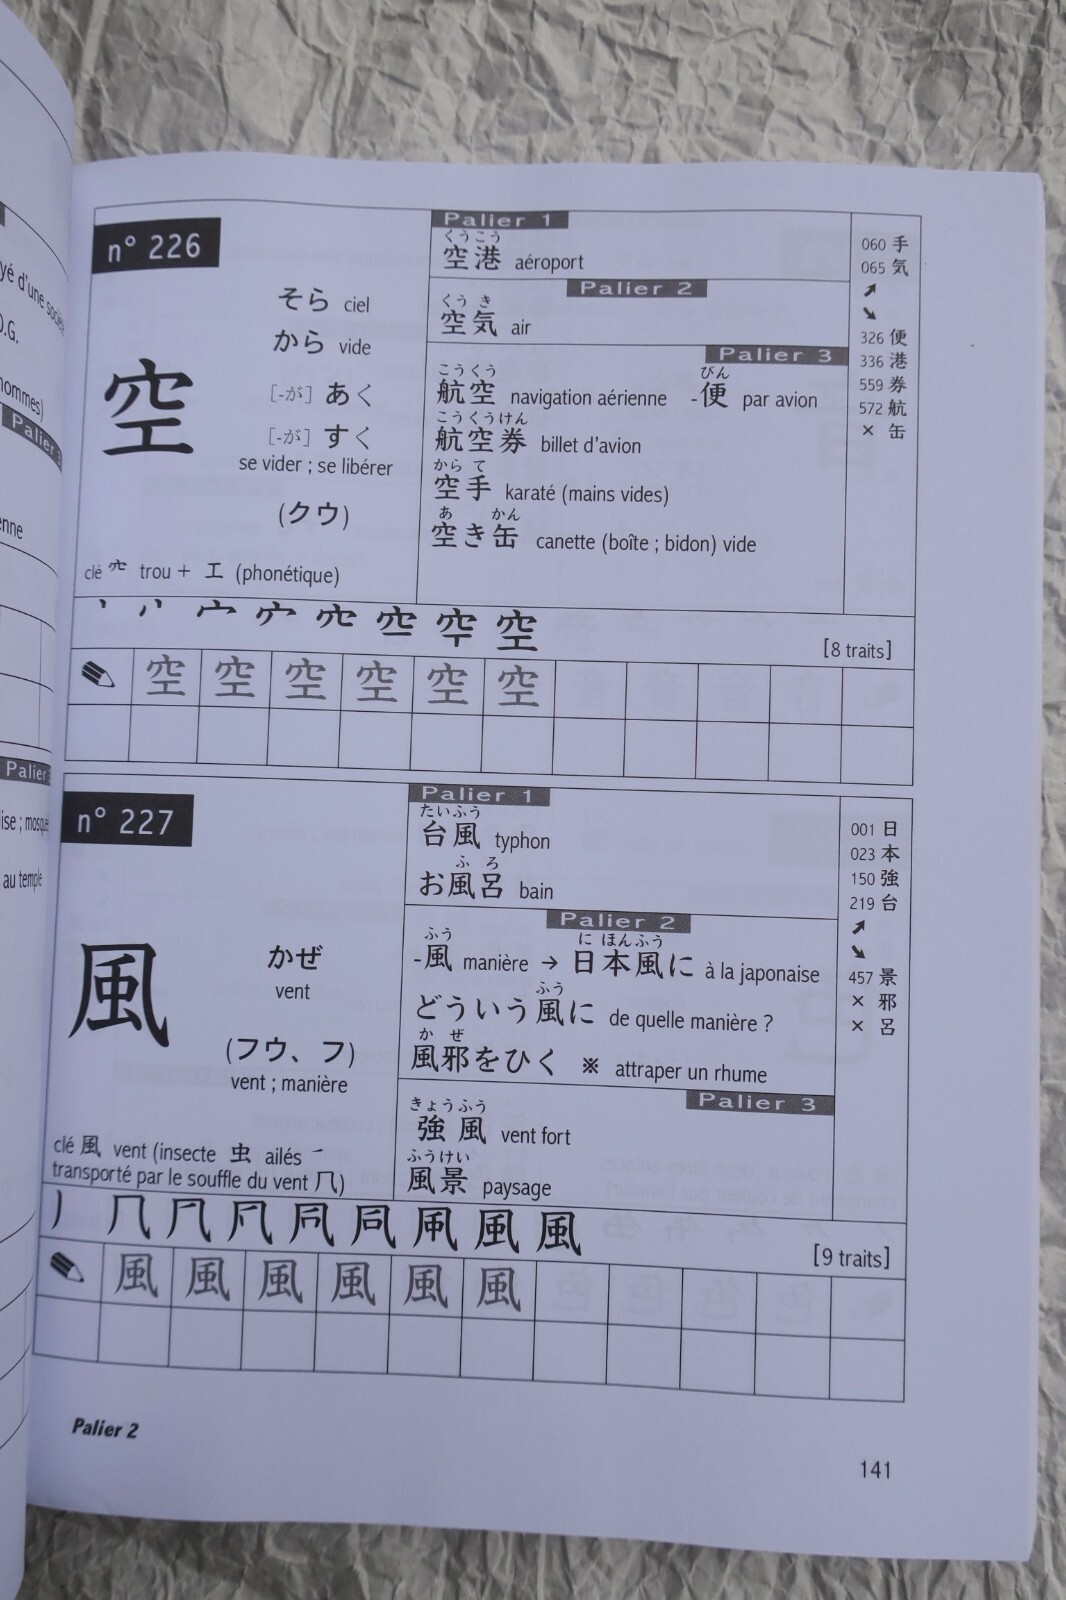 yé d'une société
O.G.
hommes)
Palier 3
enne
Palier
lise ; mosqué
au temple
n° 226
空
そら ciel
から vide
[-が] あく
[-が] すく
se vider ; se libérer
(クウ)
clé 穴 trou + 工 (phonétique)
Palier 1
くうこう
空港 aéroport
Palier 2
くう き
空気 air
Palier 3
こうくう びん
航空 navigation aérienne -便 par avion
こうくうけん
航空券 billet d'avion
から て
空手 karaté (mains vides)
あ かん
空き缶 canette (boîte ; bidon) vide
060 手
065 気
➚
➘
326 便
336 港
559 券
572 航
× 缶
空
[8 traits]
空 空 空 空 空 空
n° 227
風
かぜ
vent
(フウ、フ)
vent ; manière
clé 風 vent (insecte 虫 ailés ㇀
transporté par le souffle du vent 几)
Palier 1
たいふう
台風 typhon
ふ ろ
お風呂 bain
Palier 2
ふう に ほんふう
-風 manière → 日本風に à la japonaise
ふう
どういう風に de quelle manière ?
か ぜ
風邪をひく ※ attraper un rhume
Palier 3
きょうふう
強風 vent fort
ふうけい
風景 paysage
001 日
023 本
150 強
219 台
➚
➘
457 景
× 邪
× 呂
風
[9 traits]
風 風 風 風 風 風
Palier 2
141